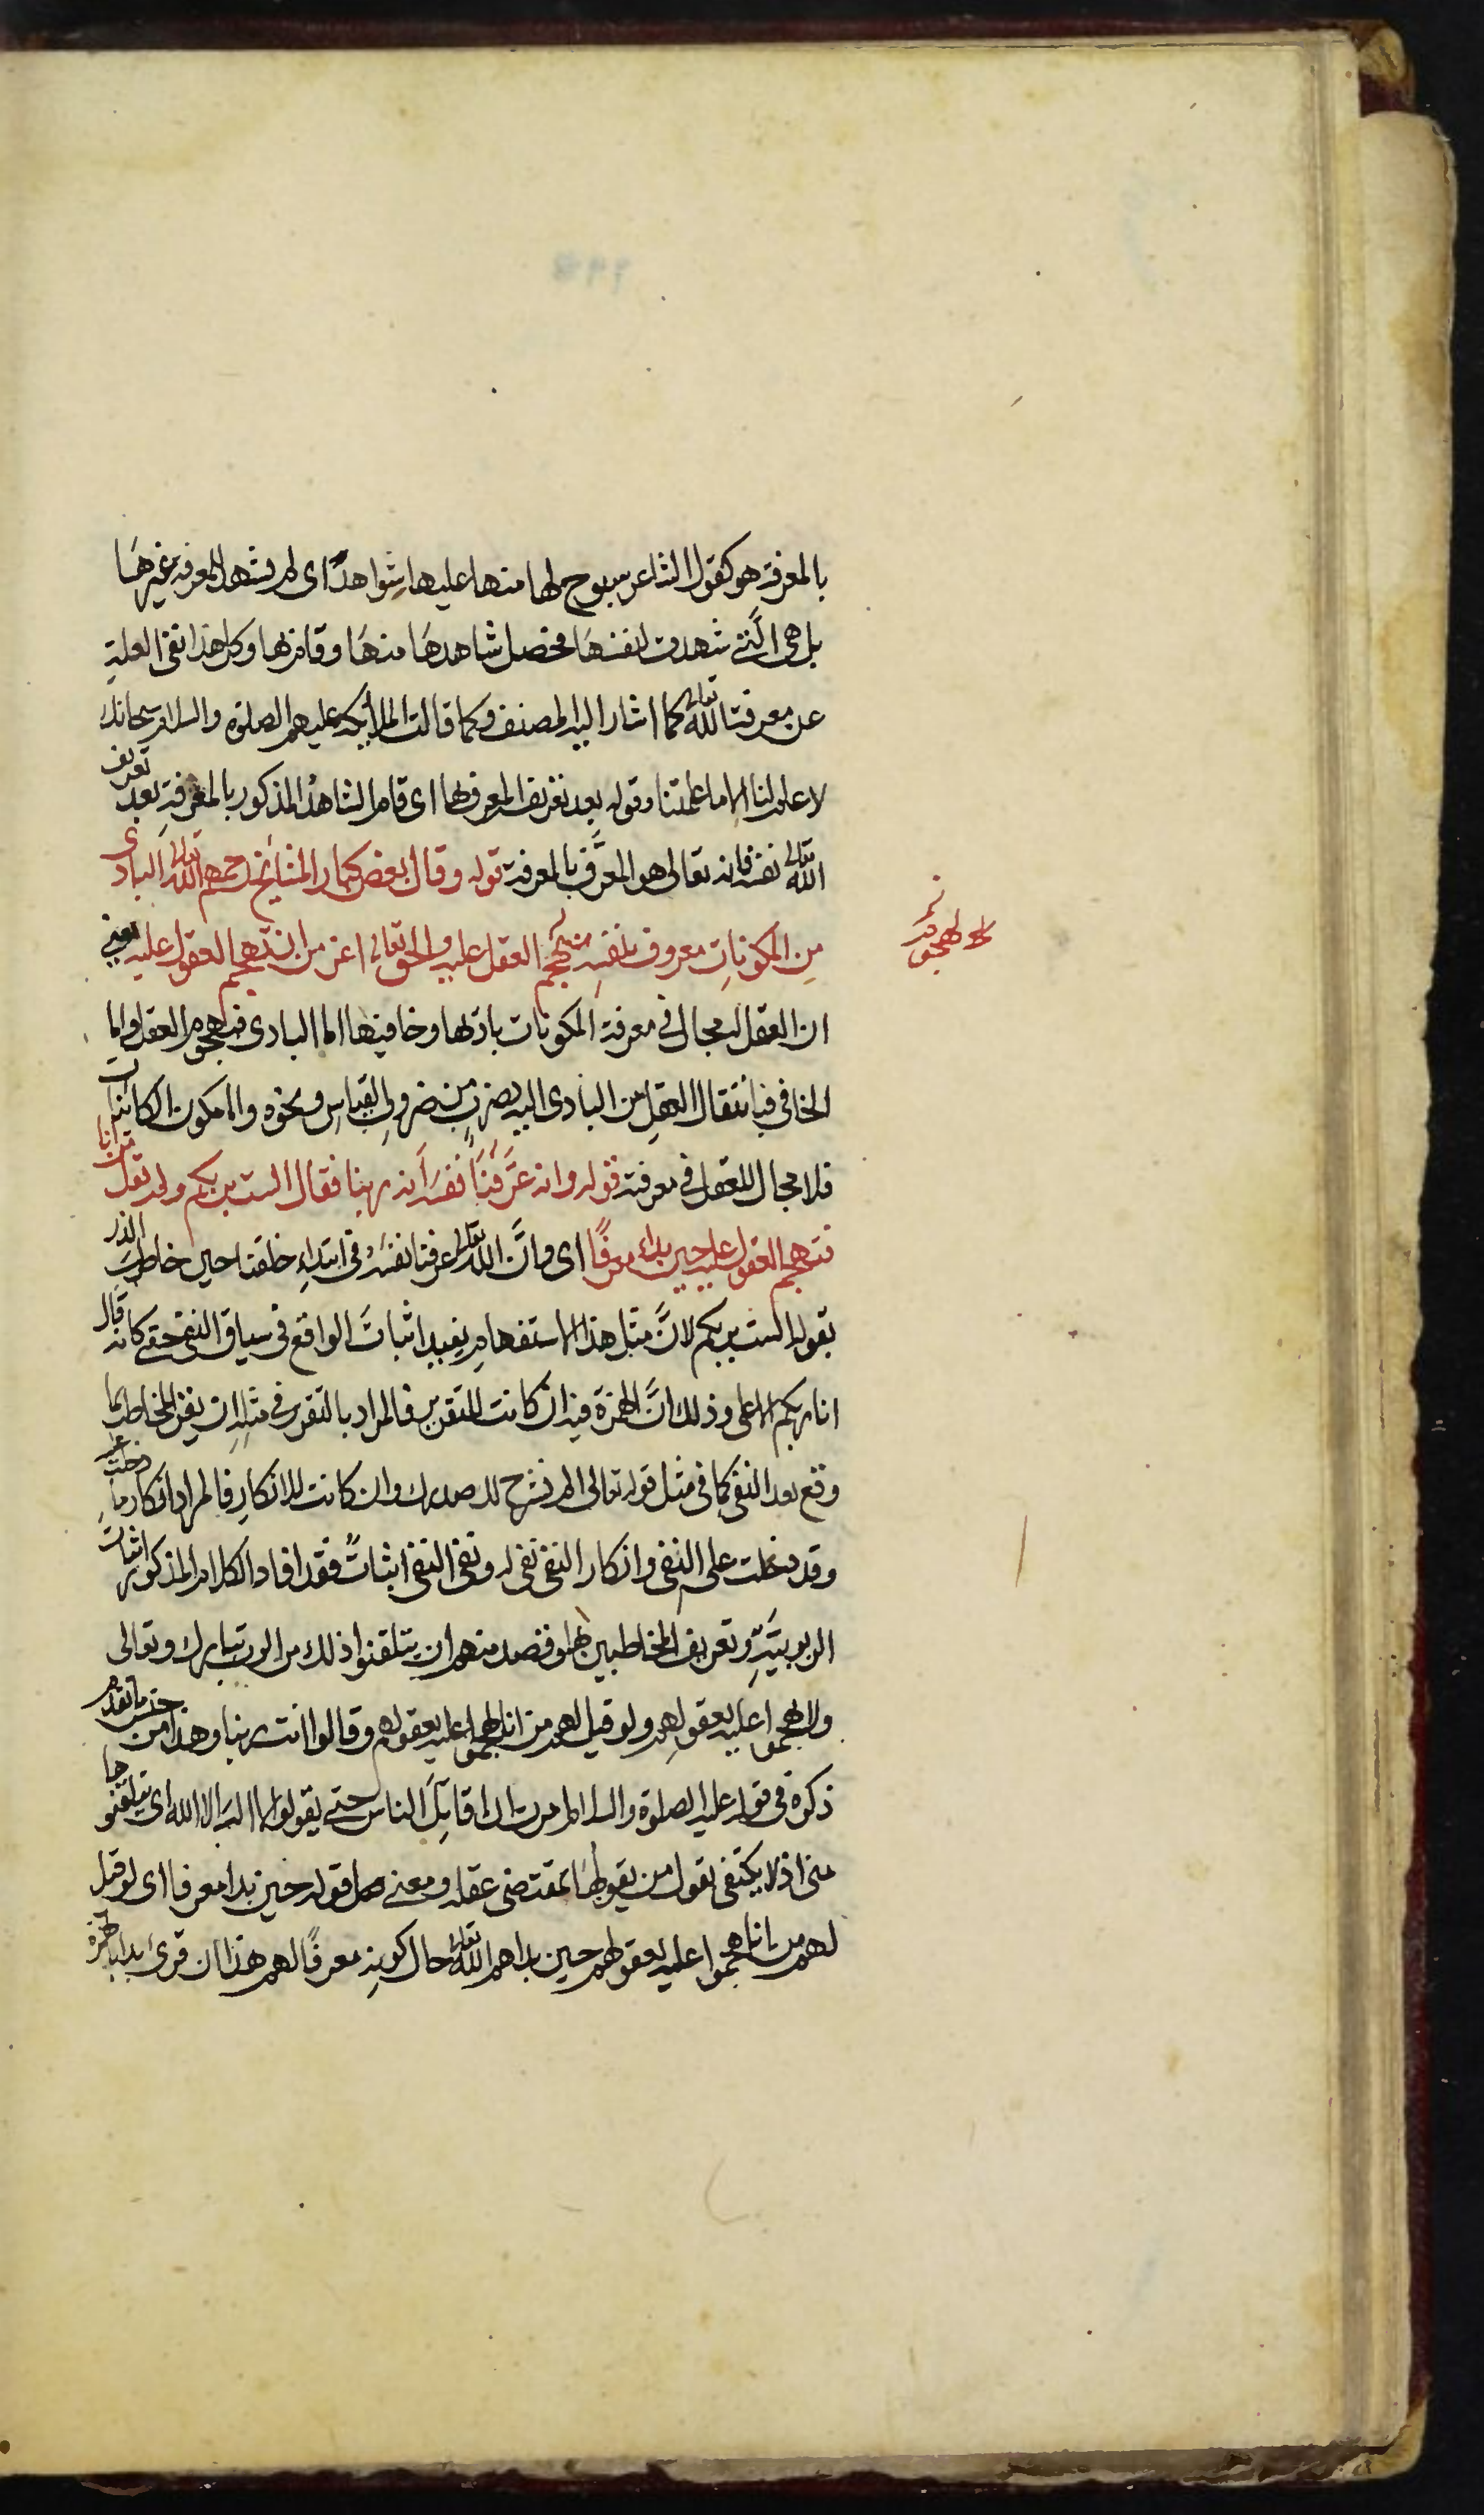 بالمعرفة هو كقول الشاعر سبوح لها منها عليها شواهدٌ اى لم يشهد للمعرفة غيرهَا
بل هى الّتى شهدت لنفسهَا فحصل شاهدهَا منهَا وقائم بها وكل هذا نفى العلية
عن معرفت الله تعالى كما اشار اليه المصنف وكما قالت الملائكة عليهم الصلوة والسلام سبحانك
لا علم لنا الا ما علمتنا وقوله بعد تعريف المعرف لها اى قام الشاهدُ المذكور بالمعرفةِ بعد تعريف
الله تعالى نفسه فانه تعالى هو المعرِّف بالمعرفة قوله وقال بعض كبار المشايخ رحمهم الله تعالى البادى
مِن المكوناتِ معروف بنفسِه لتهجم العقل عليه والحق تعالى اعز من ان تهجم العقول عليه يعنى
ان العقل له مجال فى معرفة المكونات باديها وخافيها اما البادى فبهجوم العقل واما
الخافى فبانتقال العقلِ من البادى اليه بضربٍ من ضروب القياسِ ونحوه واما مكون الكائنات
فلا مجال للعقل فى معرفته قوله وانه عرَّفنَا نفسَه اَنه ربنا فقال الست بربكم ولم يقل من انا
فتهجم العقول عليه حين بداء معرفًا اى وانَّ الله تعالى عرفنا نفسَهُ فى ابتداءِ خلقنا حين خاطب الذر
بقوله الست بربكم لانَّ مثل هذا الاستفهامِ يفيد اثباتَ الواقع فى سياق النفى حتى كانه قال
انا ربكم الاعلى وذلك انَّ الهمزةَ فيه ان كانت للتقرير فالمراد بالتقرير فى مثلِه ان يقر المخاطب بما
وقع بعد النفى كما فى مثل قوله تعالى الم نشرح لك صدرك وان كانت للانكارِ فالمراد انكار ما دخلت عليه
وقد دخلت على النفى وانكار النفى نفى له ونفى النفى اثباتٌ فقد افاد الكلام المذكور اثبات
الربوبيَّةِ وتعريف المخاطبين بها وقصد منهم ان يتلقنوا ذلك من الرب تبارك وتعالى
ولا يهجموا عليه بعقولِهم ولو قيل لهم من انا لهجموا عليه بعقولهم وقالوا انت ربنا وهذا من جنس ما تقدم
ذكره فى قوله عليه الصلوة والسلام امرت ان اقاتِلَ الناس حتى يقولوا لا اله الا الله اى يتلقنوها
منى اذ لا يكتفى بقول من يقولها بمقتضى عقله ومعنى قوله حين بدا معرفا اى لو قيل
لهم من انا هجموا عليه بعقولهم حين بداهم الله تعالى حال كونِه معرفًا لهم هذا ان قرئ بدا بالهمزة